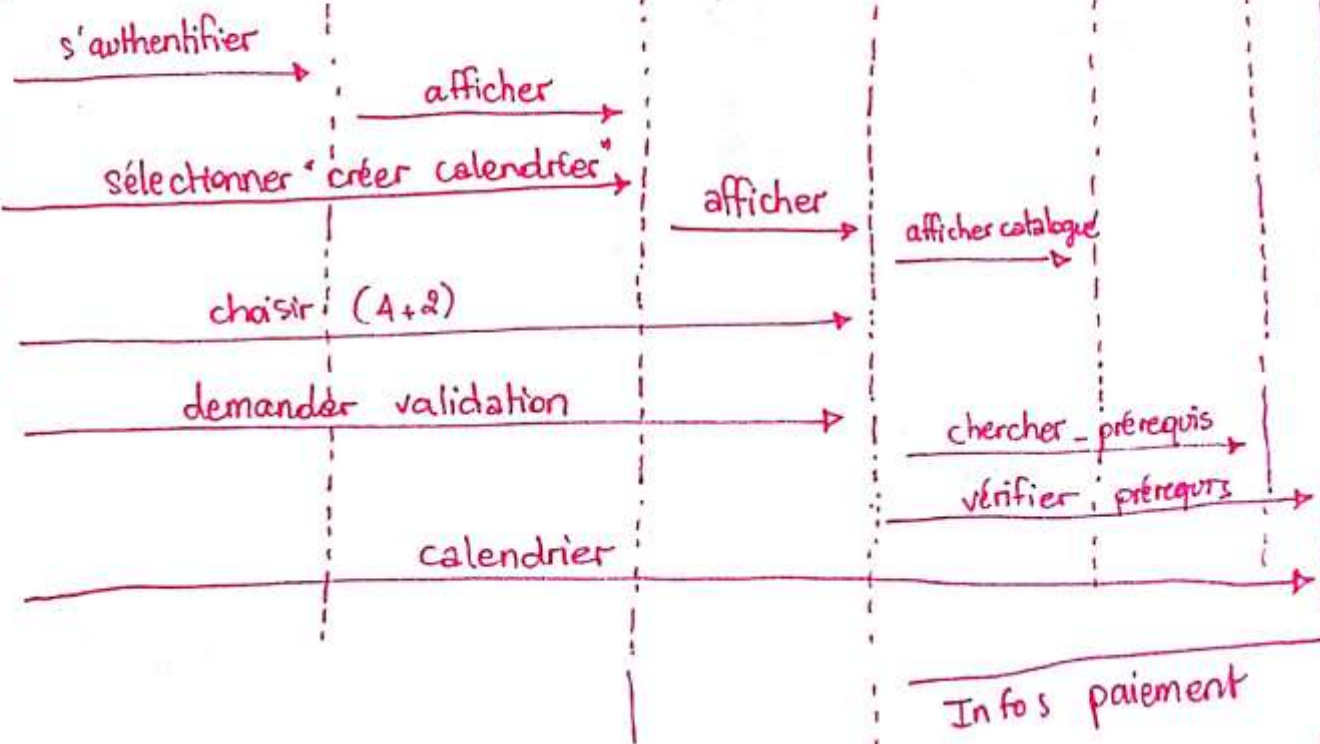 s'authentifier
afficher
sélectionner "créer calendrier"
afficher
afficher catalogue
choisir (4+2)
demander validation
chercher_prérequis
vérifier prérequis
calendrier
Infos paiement